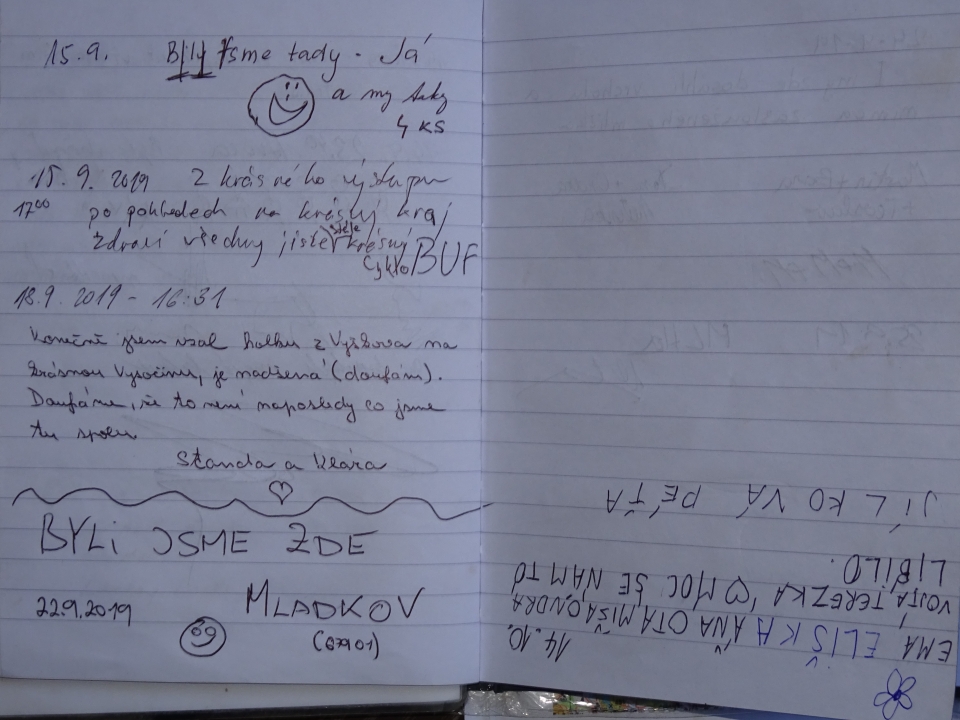 15.9. Byly jsme tady - Já
a my taky
4 KS
15.9. 2019 z krásného výstupu
17⁰⁰ po pohledech na krásný kraj
zdraví všechny jistě stále krásný
Cyklo BUF
18.9. 2019 - 16:31
Konečně jsem vzal holku z Vyškova na
krásnou Vysočinu, je nadšená (doufám).
Doufáme, že to není naposledy co jsme
tu spolu
Standa a Klára
BYLI JSME ZDE
MLADKOV
22.9.2019
(67901)
14.10.
EMA ELIŠKA ÁŇA OTA MIŠA, ONDRA
VOJTA TEREZKA, MOC SE NÁM TO
LÍBILO.
JÍLKOVÁ PÉŤA